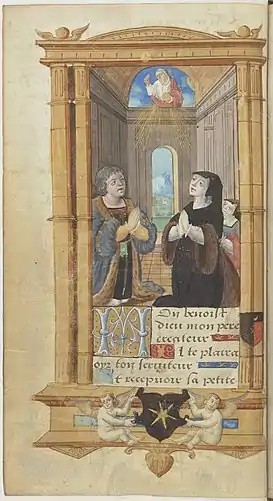 Mon benoist
dieu mon pere
createur Il te plaira
oyr ton serviteur
Et recepvoir sa petite